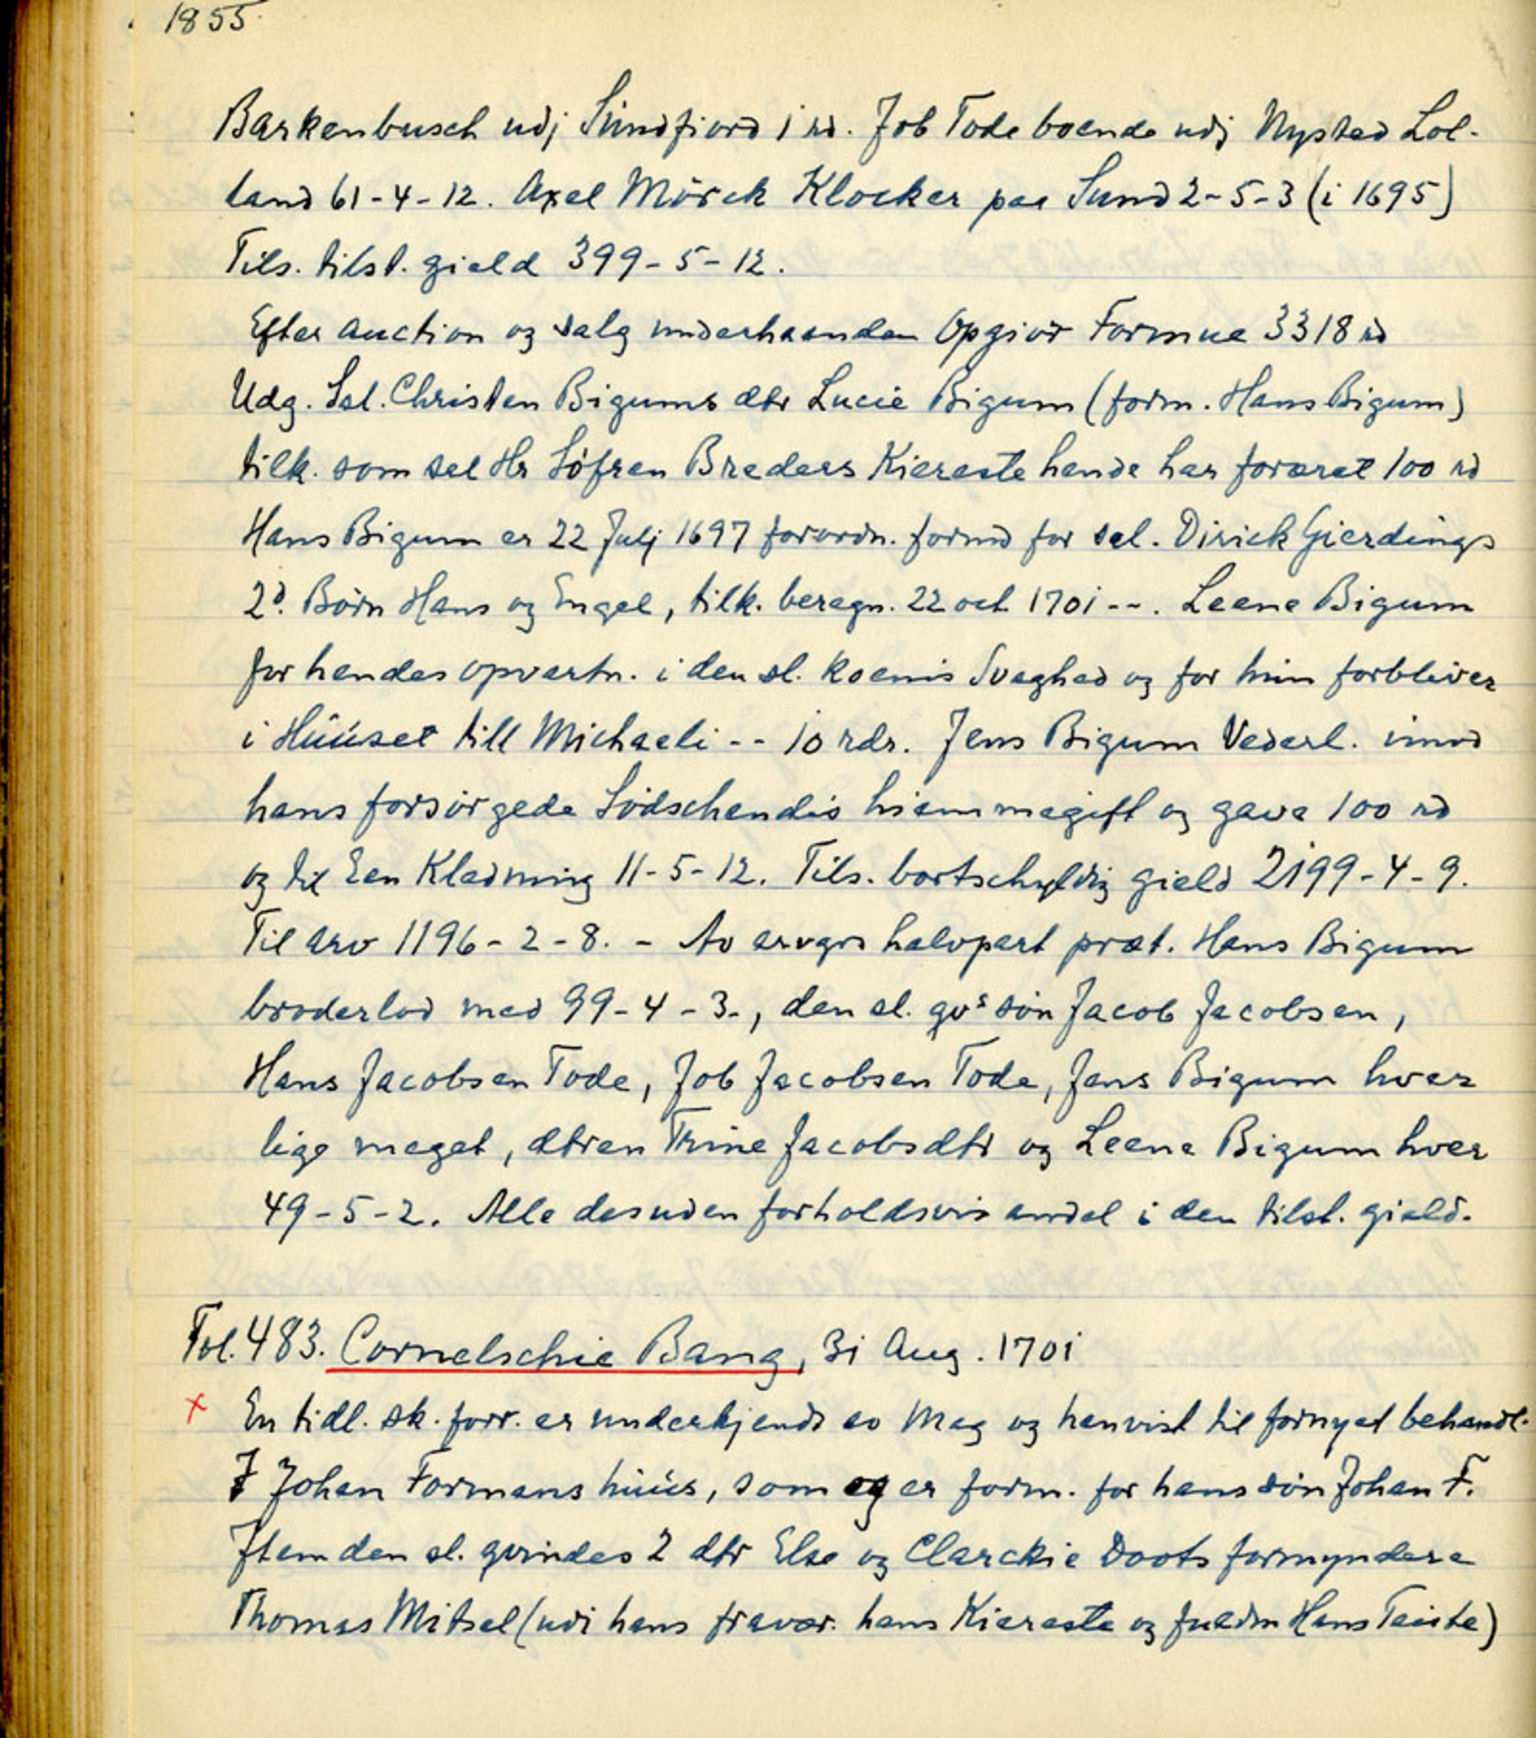 1855
Barkenbusch udj Sündfiord 1 rd. Job Tode boende udj Nysted Lol-
land 61-4-12. Axel Mörck Klocker paa Sund 2-5-3 (i 1695)
Tils. tilst. gield 399-5-12.
Efter auction og salg underhaanden Opgiör Formue 3318 rd
Udg. Sal. Christen Bigums dtr Lucie Bigum (form. Hans Bigum)
tilk. som sal Hr Söfren Breders Kiereste hende har foræret 100 rd
Hans Bigum er 22 Julj 1697 forordn. formd for sal. Dirick Gierdings
2d. Börn Hans og Engel, tilk. beregn. 22 oct 1701 --. Leene Bigum
for hendes opvartn. i den sl. koenis Svaghed og for hun forbliver
i Hüüset till Michaeli -- 10 rdr. Jens Bigum Vederl. imod
hans forsörgede Södschendis hiemmegift og gave 100 rd
og til Een Kledning 11-5-12. Tils. bortschyldig gield 2199-4-9.
Til arv 1196-2-8. - Av arvgrs halvpart præt. Hans Bigum
broderlod med 99-4-3-, den sl. qvs sön Jacob Jacobsen,
Hans Jacobsen Tode, Job Jacobsen Tode, Jens Bigum hver
lige meget, dtren Trine Jacobsdtr og Leene Bigum hver
49-5-2. Alle desuden forholdsvis andel i den tilst. gield.
Fol. 483. Cornelschie Bang, 31 Aug. 1701
x En tidl. sk. forr. er underkjendt av Mag og henvist til fornyet behandl.
I Johan Formans hüüs, som og er form. for hans sön Johan F.
Item den sl. qvindes 2 dtr Else og Clarckie Doots formyndere
Thomas Mitsel (udi hans fravær. hans Kiereste og fuldm Hans Teiste)